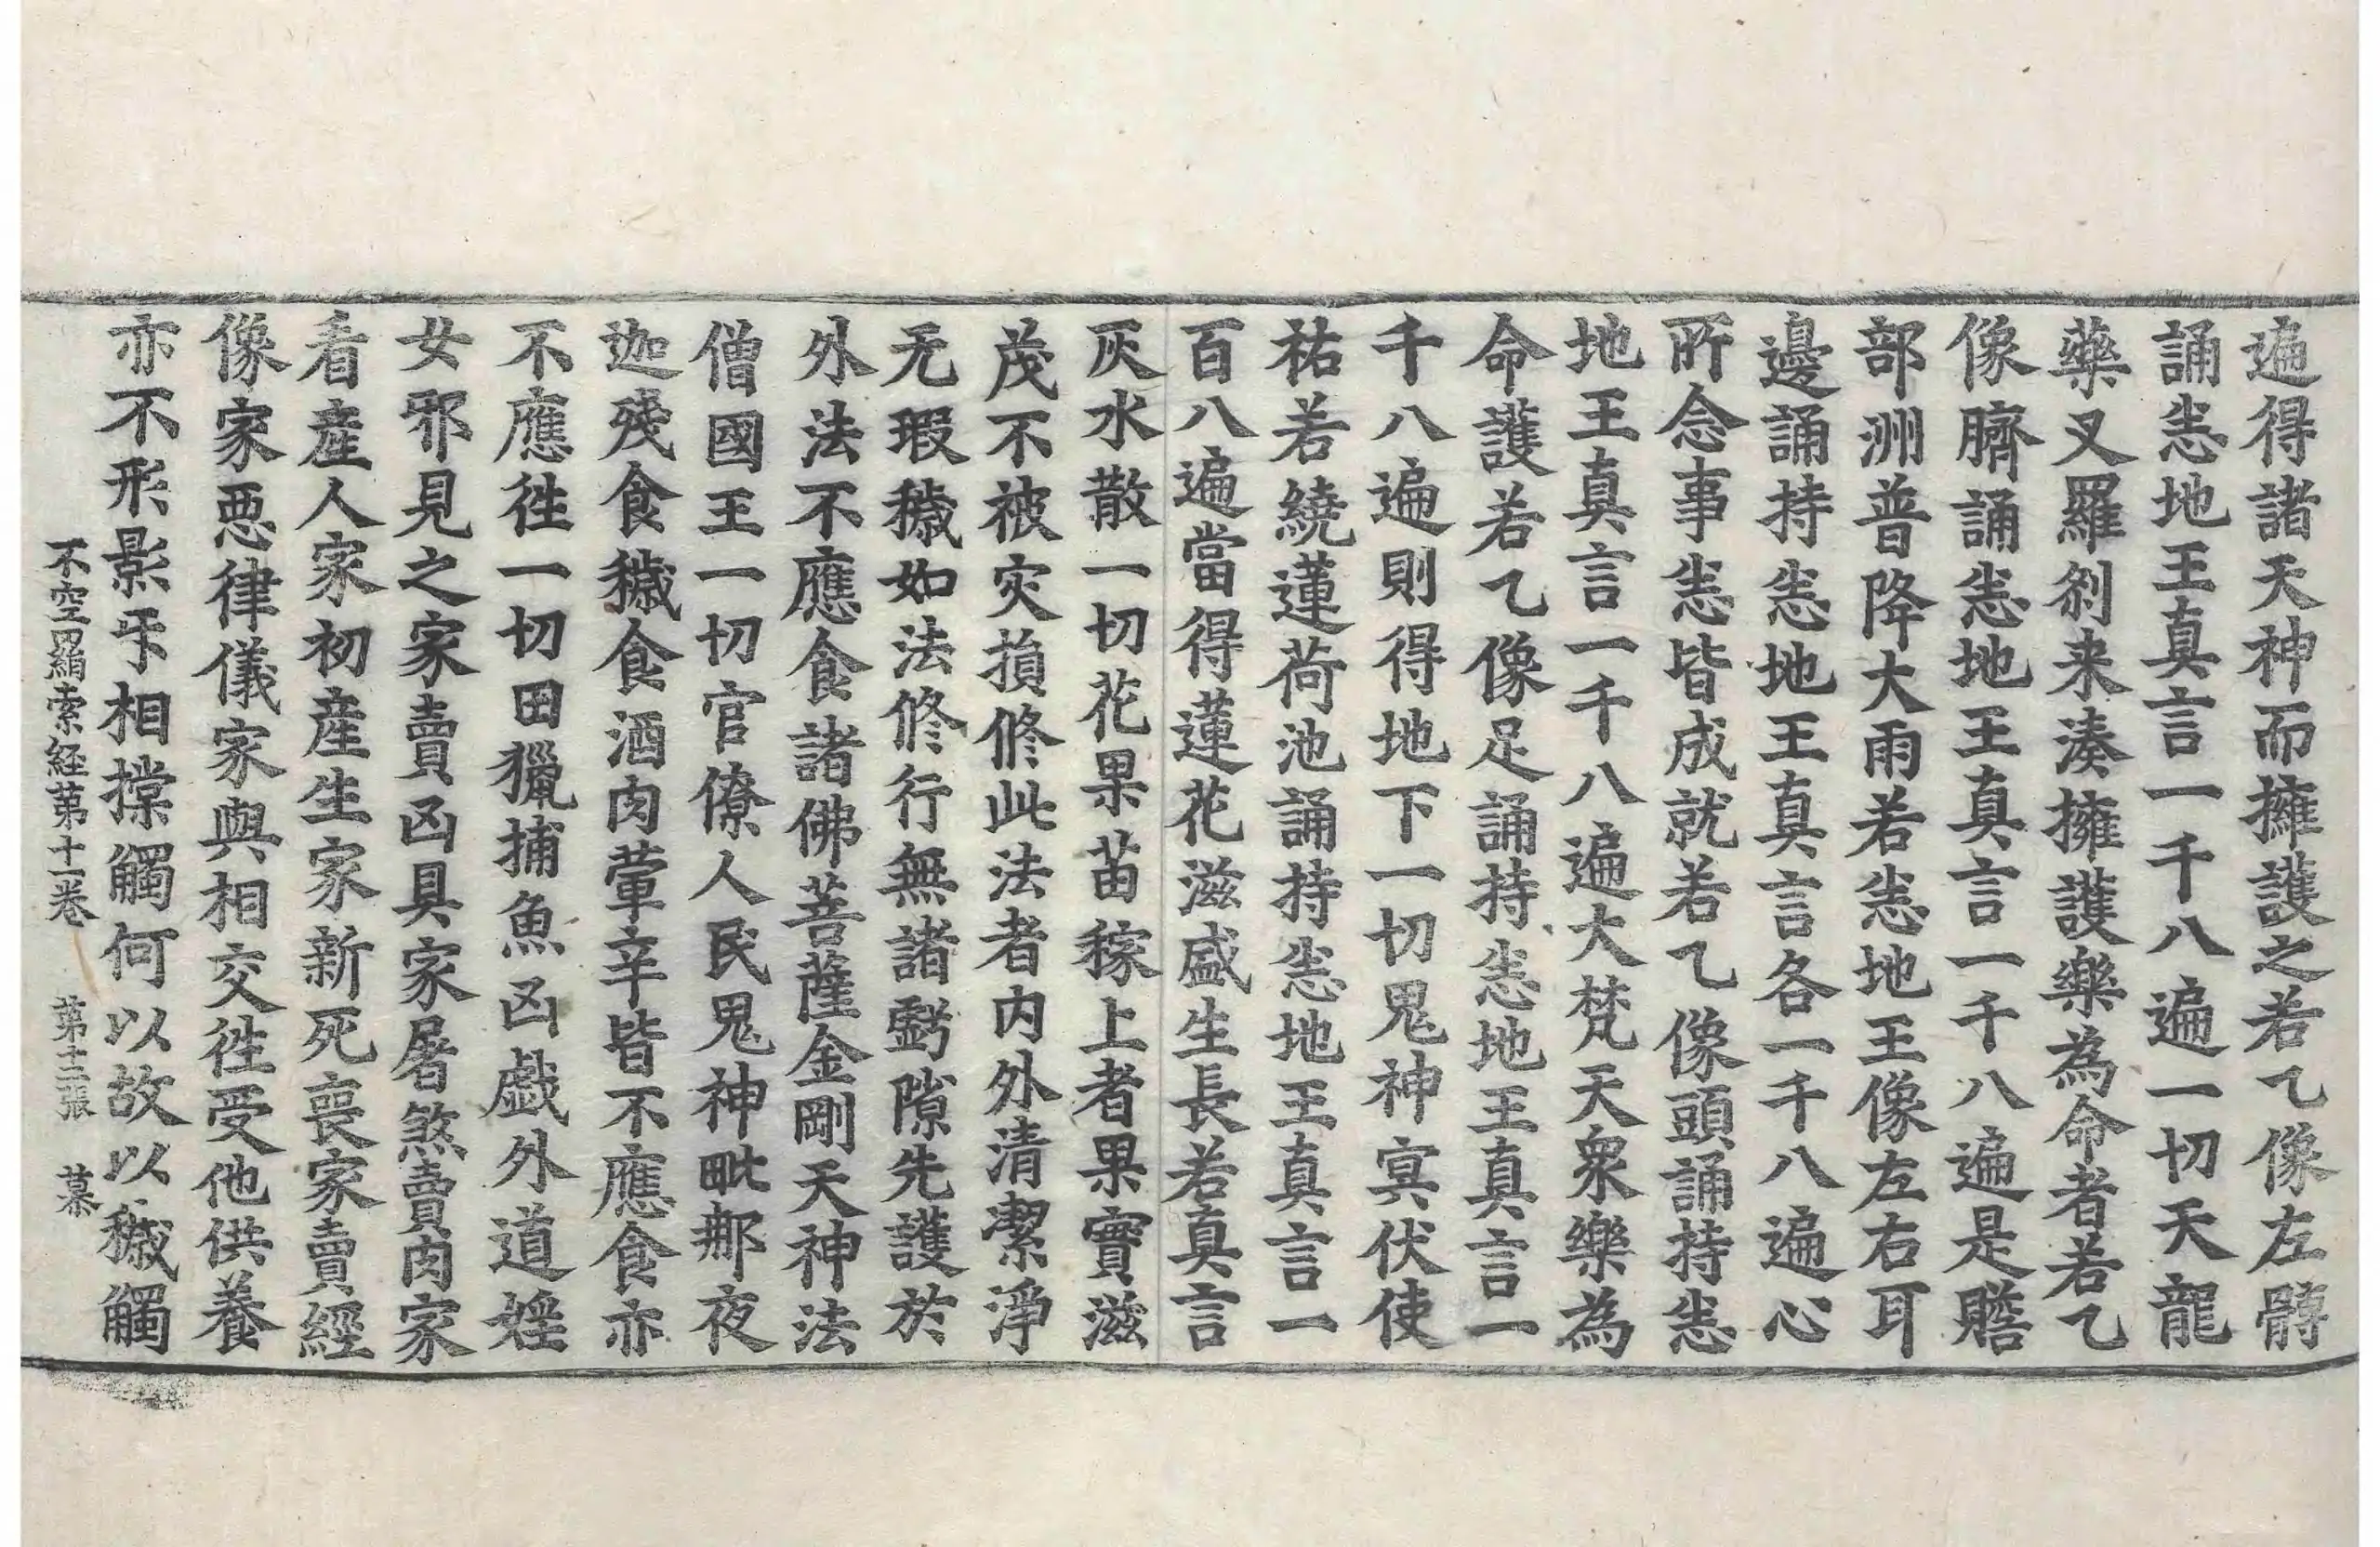 遍得諸天神而擁護之若乙像左髆
誦恙地王真言一千八遍一切天龍
藥叉羅剎来湊擁護樂為命者若乙
像臍誦恙地王真言一千八遍是贍
部洲普降大雨若恙地王像左右耳
邊誦持恙地王真言各一千八遍心
所念事恙皆成就若乙像頭誦持恙
地王真言一千八遍大梵天衆樂為
命護若乙像足誦持恙地王真言一
千八遍則得地下一切鬼神冥伏使
祐若繞蓮荷池誦持恙地王真言一
百八遍當得蓮花滋盛生長若真言
灰水散一切花果苗稼上者果實滋
茂不被灾損修此法者内外清潔淨
无瑕穢如法修行無諸虧隙先護於
外法不應食諸佛菩薩金剛天神法
僧國王一切官僚人民鬼神毗那夜
迦殘食穢食酒肉葷辛皆不應食亦
不應徃一切田獵捕魚凶戲外道婬
女邪見之家賣凶具家屠煞賣肉家
看産人家初産生家新死喪家賣經
像家惡律儀家與相交徃受他供養
亦不形影乎相摚觸何以故以穢觸
不空羂索経第十一卷 第十三張 慕